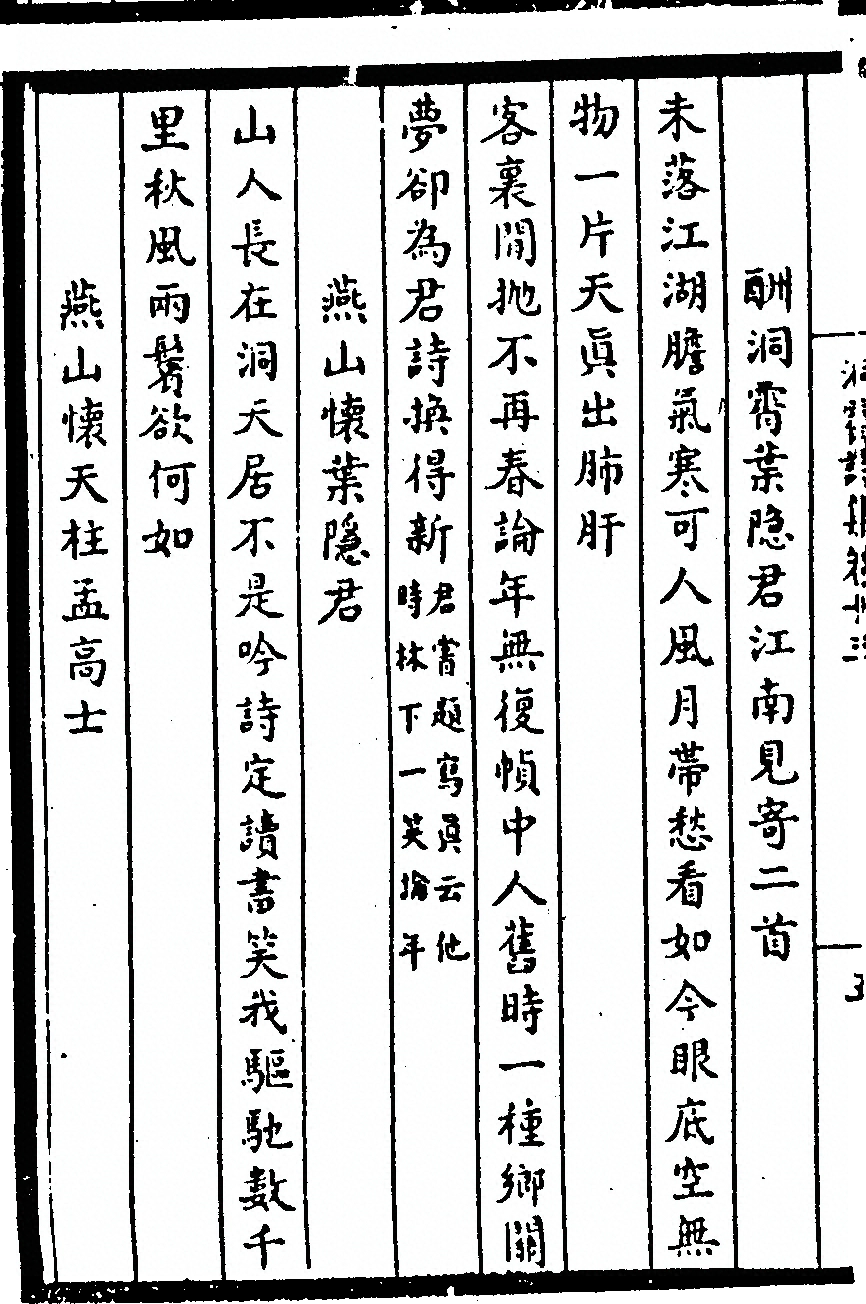 酬洞霄葉隐君江南見寄二首
未落江湖膽氣寒可人風月帶愁看如今眼底空無
物一片天眞出肺肝
客裏閒抛不再春論年無復幀中人舊時一種鄉關
夢卻為君詩換得新君嘗題寫眞云他
時林下一笑掄年
燕山懷葉隱君
山人長在洞天居不是吟詩定讀書笑我驅馳數千
里秋風兩鬢欲何如
燕山懷天柱孟高士